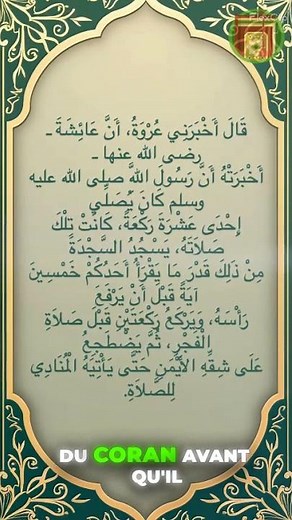 قَالَ أَخْبَرَنِي عُرْوَةُ، أَنَّ عَائِشَةَ ـ
رضى الله عنها ـ
أَخْبَرَتْهُ أَنَّ رَسُولَ اللَّهِ صلى الله عليه
وسلم كَانَ يُصَلِّي
إِحْدَى عَشْرَةَ رَكْعَةً، كَانَتْ تِلْكَ
صَلاَتَهُ، يَسْجُدُ السَّجْدَةَ
مِنْ ذَلِكَ قَدْرَ مَا يَقْرَأُ أَحَدُكُمْ خَمْسِينَ
آيَةً قَبْلَ أَنْ يَرْفَعَ
رَأْسَهُ، وَيَرْكَعُ رَكْعَتَيْنِ قَبْلَ صَلاَةِ
الْفَجْرِ، ثُمَّ يَضْطَجِعُ
عَلَى شِقِّهِ الأَيْمَنِ حَتَّى يَأْتِيَهُ الْمُنَادِي
لِلصَّلاَةِ.
DU CORAN AVANT
QU'IL